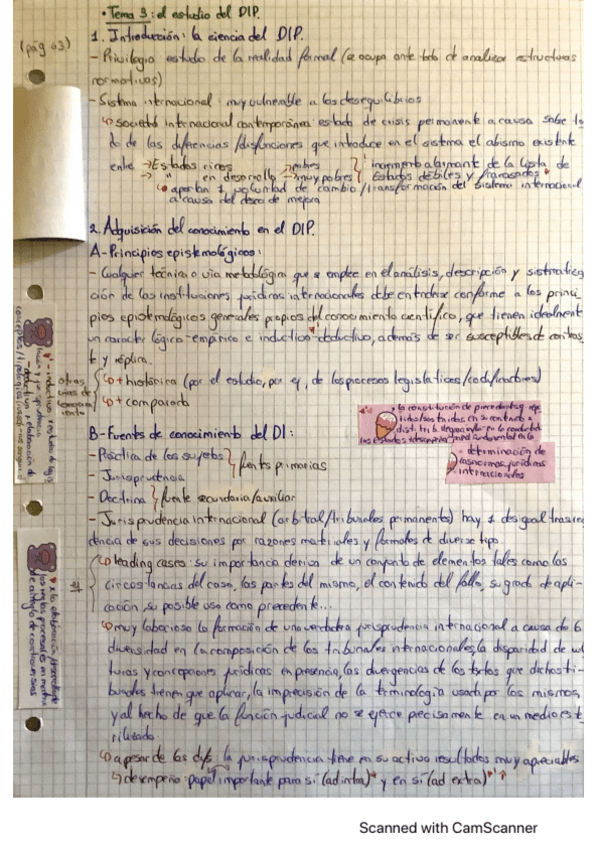 • Tema 3: el estudio del DIP.
(pág 63)
1. Introducción: la ciencia del DIP.
- Privilegia estudio de la realidad formal (se ocupa ante todo de analizar estructuras
normativas)
- Sistema internacional: muy vulnerable a los desequilibrios
↳ sociedad internacional contemporánea: estado de crisis permanente a causa sobre to
do de las diferencias/disfunciones que introduce en el sistema el abismo existente
entre → Estados ricos
→ " en desarrollo → pobres → muy pobres } incremento alarmante de la lista de Estados débiles y fracasados
↳ aportan 1 voluntad de cambio/transformación del sistema internacional
a causa del deseo de mejora
2. Adquisición del conocimiento en el DIP.
A - Principios epistemológicos:
- Cualquier técnica o vía metodológica que se emplee en el análisis, descripción y sistematiza
ción de las instituciones jurídicas internacionales debe entenderse conforme a los princi
pios epistemológicos generales propios del conocimiento científico, que tienen idealmente
un carácter lógico-empírico e inductivo-deductivo, además de ser susceptibles de contras
te y réplica.
otras vías de
↳ + histórica (por el estudio, por ej, de los procesos legislativos/codificadores)
↳ + comparada
B - Fuentes de conocimiento del DI:
- Práctica de los sujetos
- Jurisprudencia
} fuentes primarias
- Doctrina } fuente secundaria/auxiliar
- determinación de
las normas jurídicas
internacionales
- Jurisprudencia internacional (arbitral/tribunales permanentes) hay 1 desigual trascen
dencia de sus decisiones por razones materiales y formales de diverso tipo.
↳ leading cases: su importancia deriva de un conjunto de elementos tales como las
circostancias del caso, las partes del mismo, el contenido del fallo, su grado de apli-
cación, su posible uso como precedente...
↳ muy laborioso la formación de una verdadera jurisprudencia internacional a causa de la
diversidad en la composición de los tribunales internacionales, la disparidad de cul
turas y concepciones jurídicas en presencia, las divergencias de los textos que dichos tri-
bunales tienen que aplicar, la imprecisión de la terminología usada por los mismos,
y al hecho de que la función judicial no se ejerce precisamente en un medio est
rilizado.
↳ a pesar de las difs, la jurisprudencia tiene en su activo resultados muy apreciables
↳ desempeño: papel importante para sí (ad intra) y en sí (ad extra)
Scanned with CamScanner